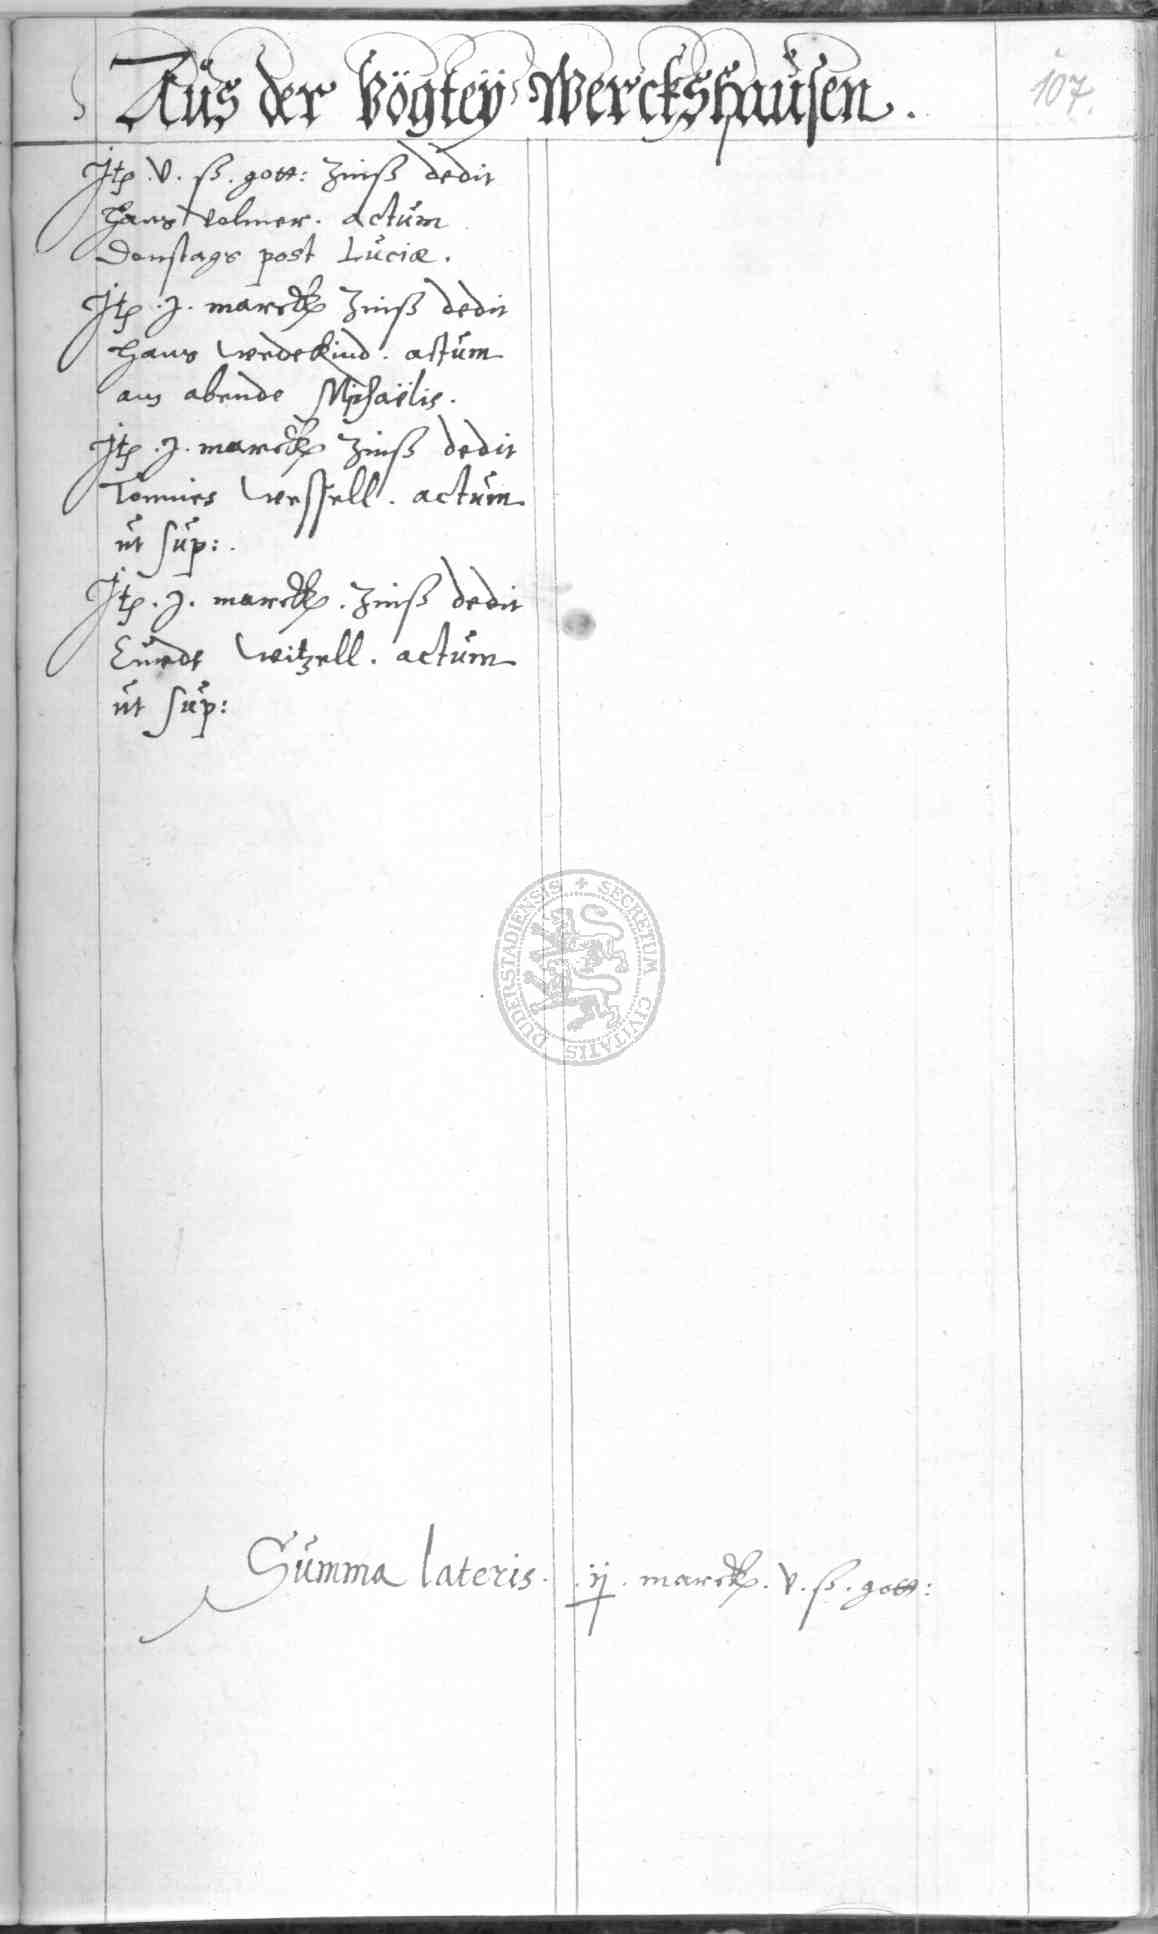 Aus der Vögteÿ Werckshausen.
107.
Jtp .v. ß. gott: Zinß dedit
Hans Volmer. actum
Donstags post Luciæ.
Jtp .j. marck Zinß dedit
Hans Wedekind. actum
am abende Michaëlis.
Jtp .j. marck Zinß dedit
Tonnies Wessell. actum
ut sup:.
Jtp .j. marck. Zinß dedit
Curdt Witzell. actum
ut sup:
SECRETUM CIVITATIS DUDERSTADIENSIS
Summa lateris. .ij. marck. v. ß. gott: